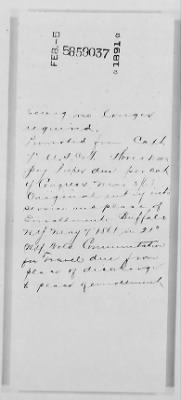 FEB.-5 5859037 *1891*
no longer
required.
from Capt
pay proper due per act
of Congress
Original entry into
service and place of
Enrollment Buffalo
N.Y. May 7 1861 in 21st
N.Y. Vols. Commutation
for travel due from
place of discharge
to place of enrollment